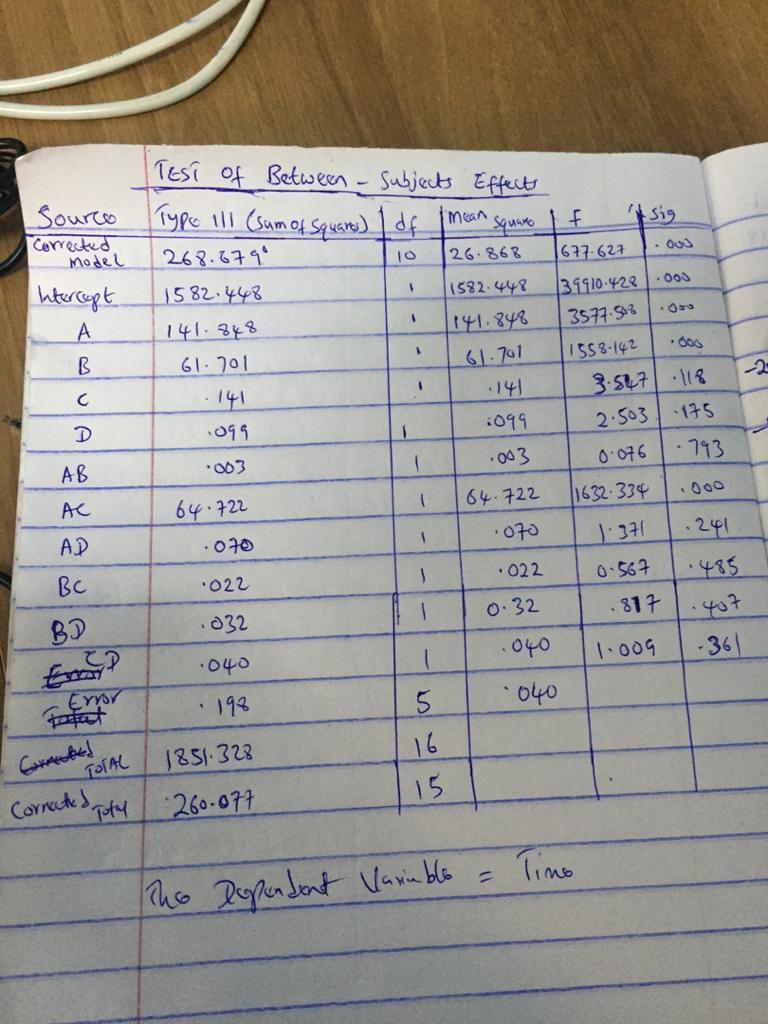 TEST Of Between - Subjects Effects
Source Type III (Sum of Squares) df Mean Square F Sig
Corrected model 268.679ᵃ 10 26.868 677.627 .000
Intercept 1582.448 1 1582.448 39910.428 .000
A 141.848 1 141.848 3577.508 .000
B 61.701 1 61.701 1558.142 .000
C .141 1 .141 3.547 .118
D .099 1 .099 2.503 .175
AB .003 1 .003 0.076 .793
AC 64.722 1 64.722 1632.334 .000
AD .070 1 .070 1.371 .241
BC .022 1 .022 0.567 .485
BD .032 1 0.32 .817 .407
CD .040 1 .040 1.009 .361
Error .198 5 .040
TOTAL 1851.328 16
Corrected Total 260.077 15
The Dependent Variable = Time